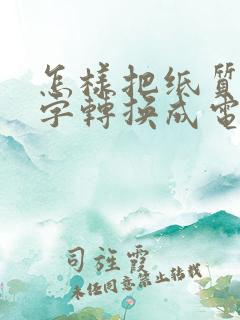 怎樣把纸質
字轉换成電
司旌霞
未经同意禁止转载